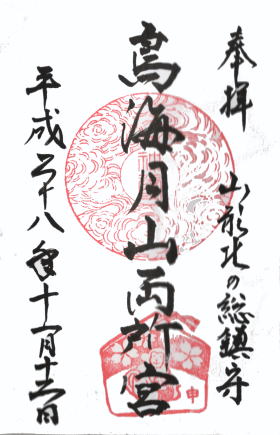 奉拝
山形北の総鎮守
鳥海月山両所宮
平成二十八年十一月十三日
申